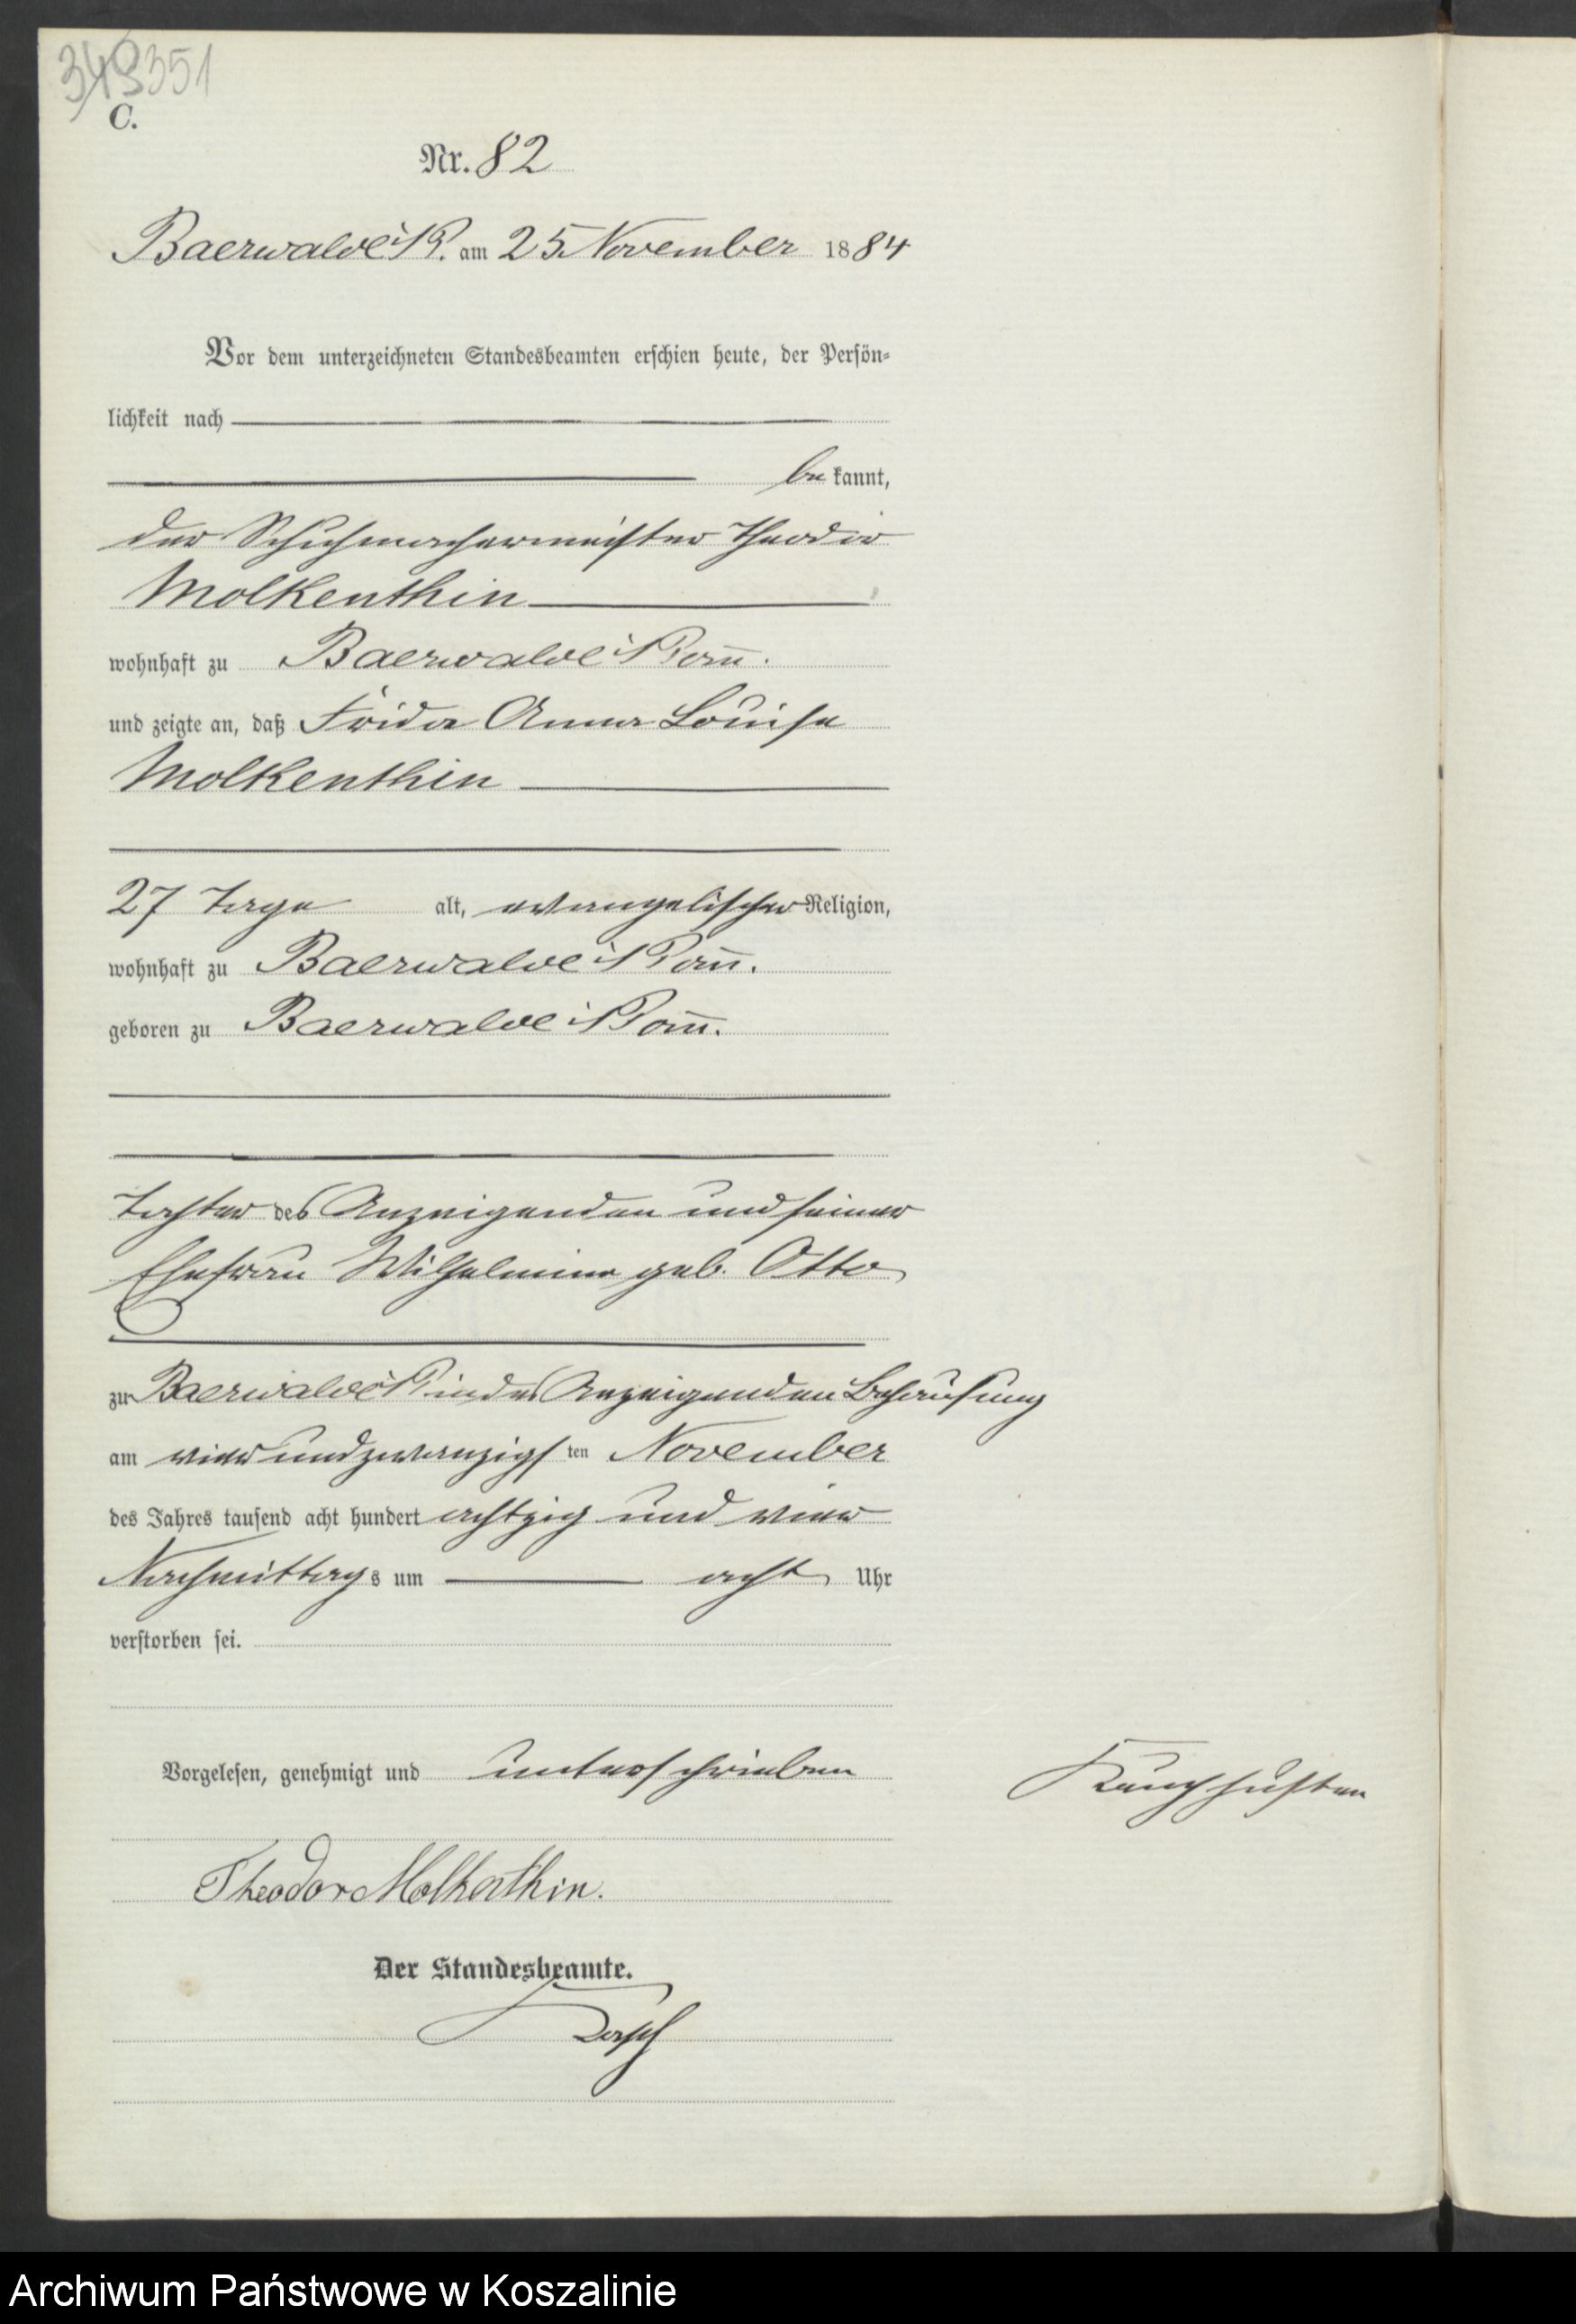 349 351
C.
Nr. 82
Baerwalde i/P. am 25 November 1884
Vor dem unterzeichneten Standesbeamten erschien heute, der Persön-
lichkeit nach
be kannt,
der Schuhmachermeister Theodor
Molkenthin
wohnhaft zu Baerwalde i/Pom̄.
und zeigte an, daß Frida Anna Louise
Molkenthin
27 Tage alt, evangelischer Religion,
wohnhaft zu Baerwalde i/Pom̄.
geboren zu Baerwalde i/Pom̄.
Tochter des Anzeigenden und seiner
Ehefrau Wilhelmine geb. Otto
zu Baerwalde i/P in des Anzeigenden Behausung
am vier und zwanzigs ten November
des Jahres tausend acht hundert achtzig und vier
Nachmittags um acht Uhr
verstorben sei.
Vorgelesen, genehmigt und unterschrieben
Keuchhusten
Theodor Molkenthin.
Der Standesbeamte.
Archiwum Państwowe w Koszalinie